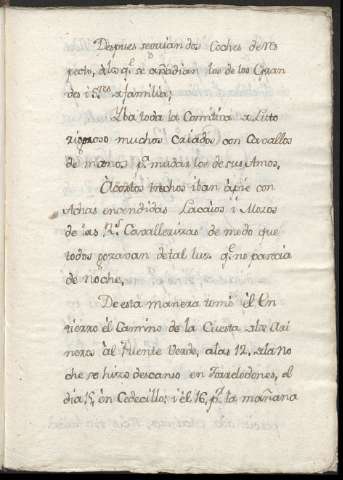 Despues seguian dos Coches de res
peto, á los q.e se añadian los de los Gran
des i S.res y familia;
Yba toda la Comitiva a Luto
rigoroso muchos Criados con Cavallos
de manos p.a mudar los de sus Amos.
A cortos trechos iban á pie con
Achas encendidas Lacaios i Mozos
de las R.s Cavallerizas de modo que
todos gozasan de tal luz q.e no parecia
de noche.
De esta manera tomó él En
tierro él Camino de la Cuesta a los Ari
neros ál Puente Verde, a las 12. de la no
che se hizo descanso en Torrelodones, el
dia 15, en Cedecillo; i él 16, p.r la mañana